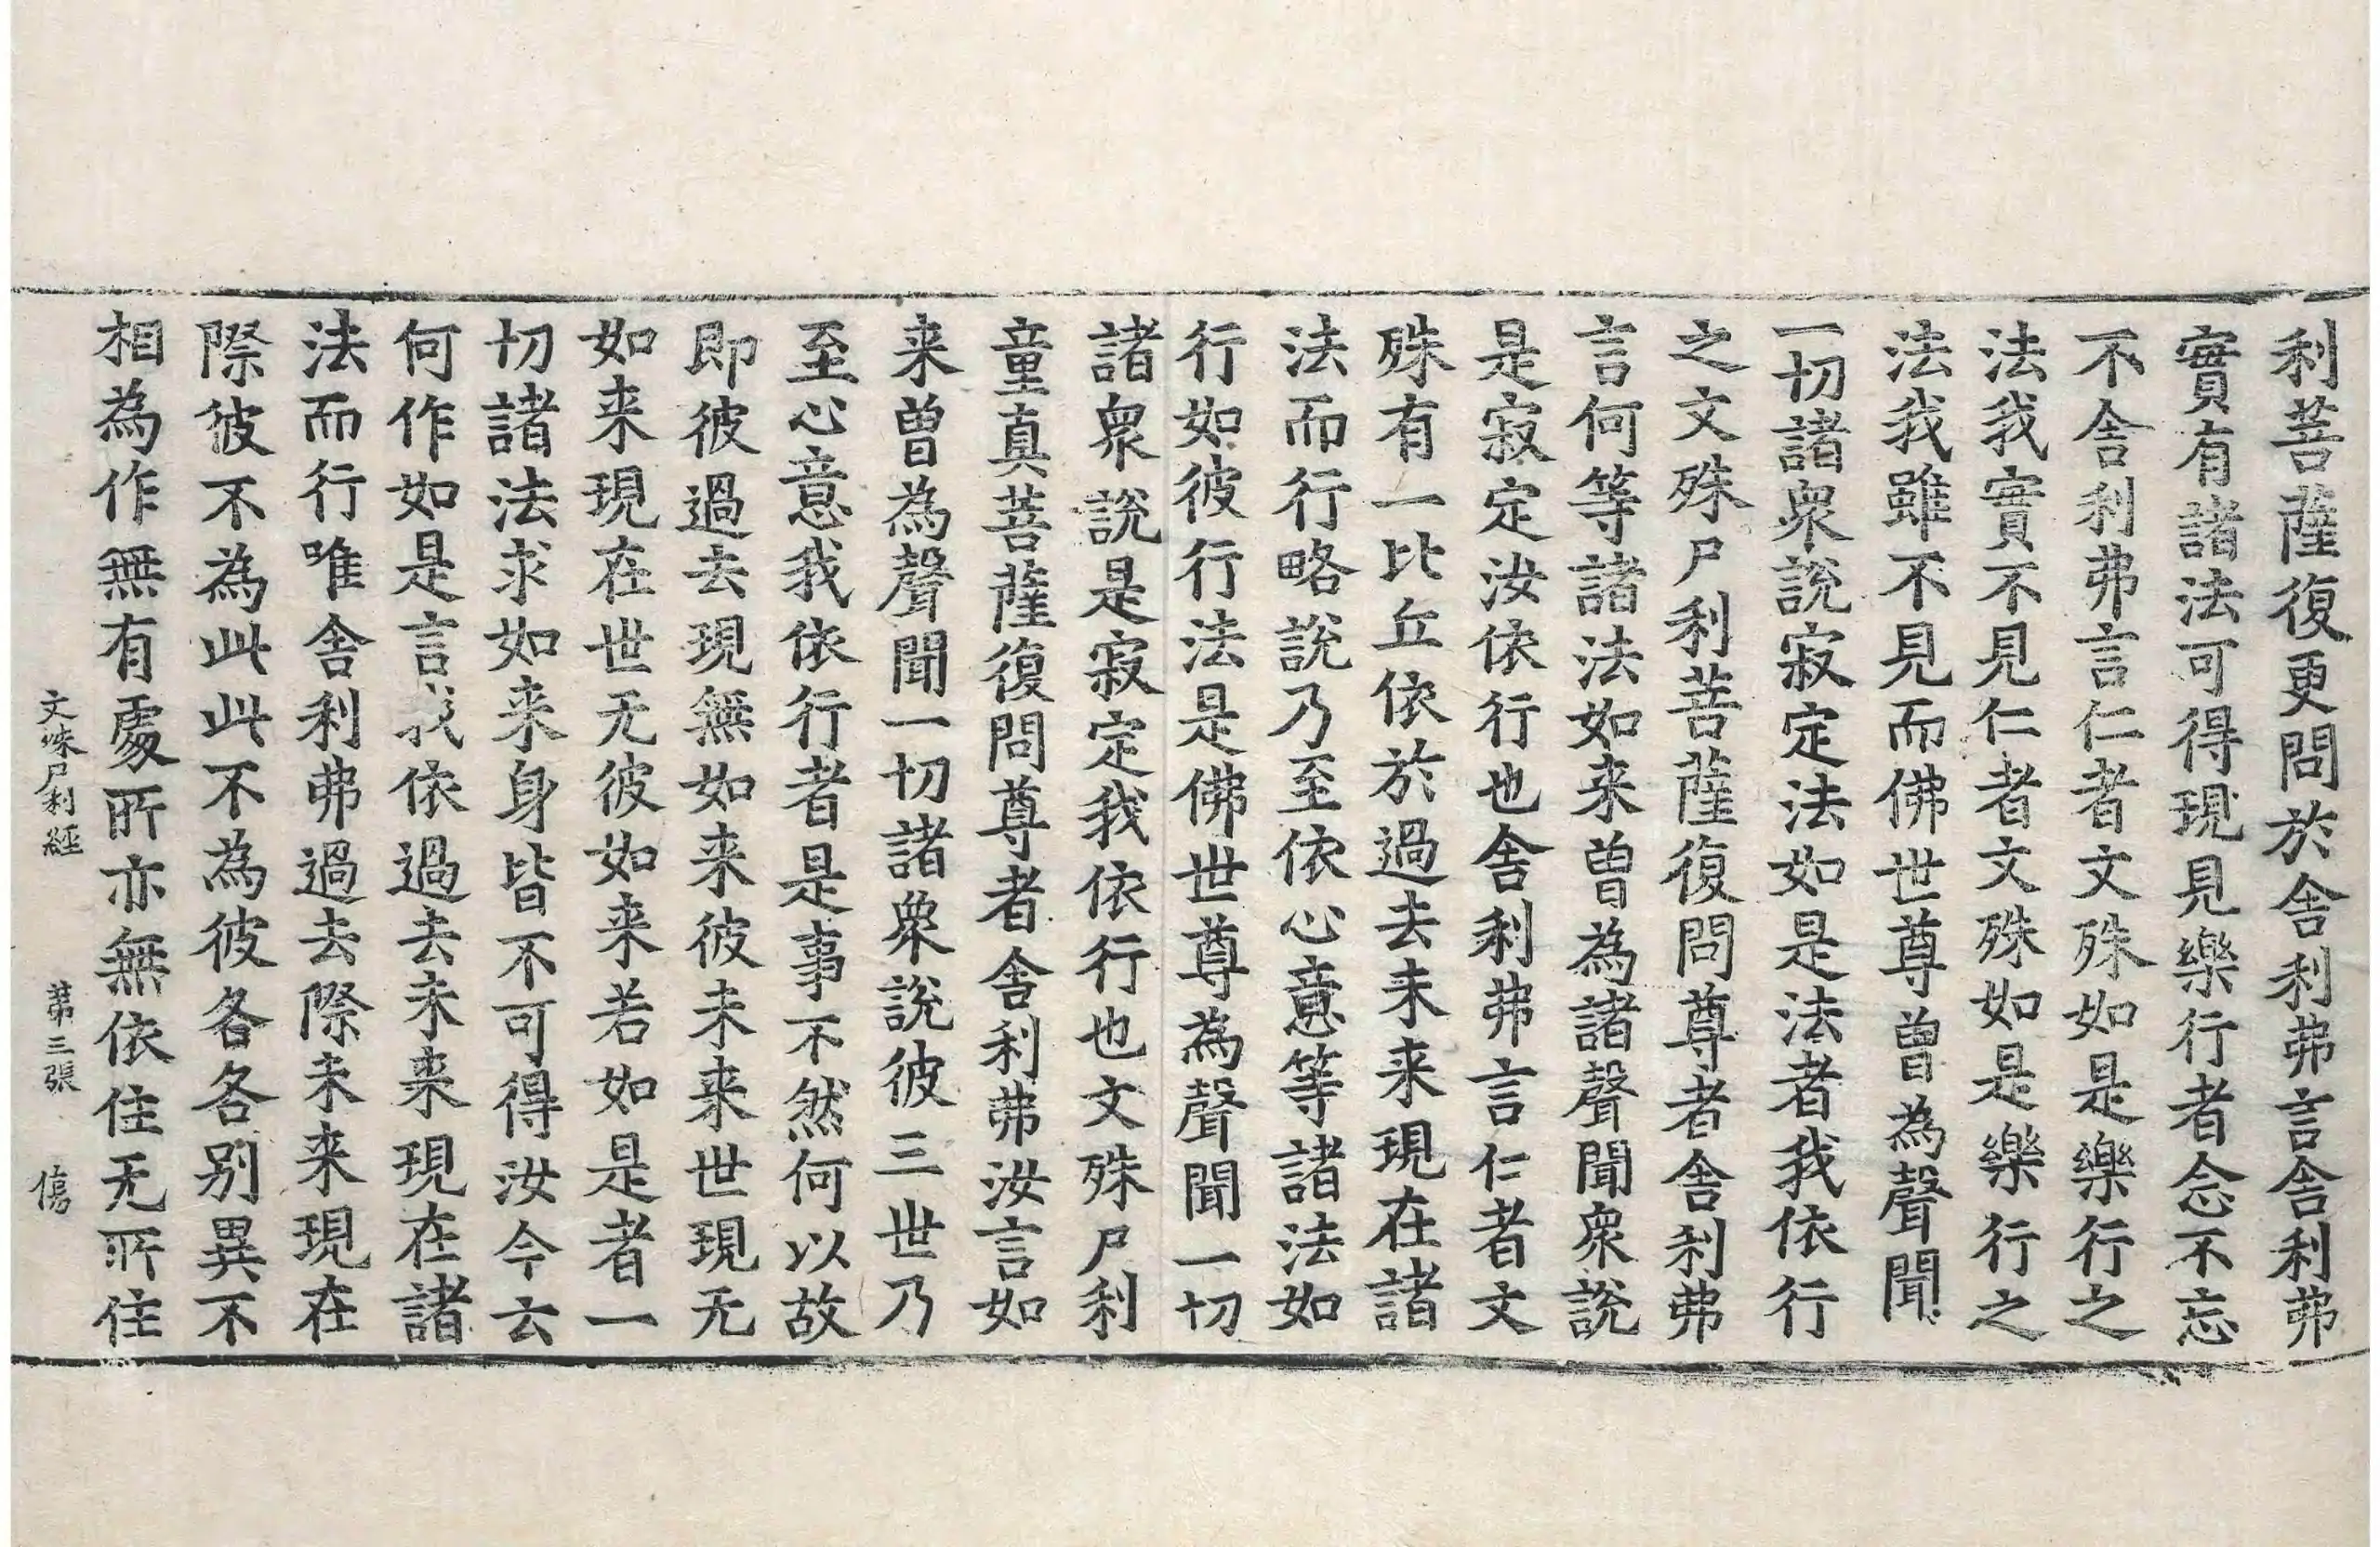 利菩薩復更問於舍利弗言舍利弗
實有諸法可得現見樂行者念不忘
不舍利弗言仁者文殊如是樂行之
法我實不見仁者文殊如是樂行之
法我雖不見而佛世尊曾為聲聞
一切諸衆說寂定法如是法者我依行
之文殊尸利菩薩復問尊者舍利弗
言何等諸法如来曾為諸聲聞衆說
是寂定汝依行也舍利弗言仁者文
殊有一比丘依於過去未来現在諸
法而行略說乃至依心意等諸法如
行如彼行法是佛世尊為聲聞一切
諸衆說是寂定我依行也文殊尸利
童真菩薩復問尊者舍利弗汝言如
来曾為聲聞一切諸衆說彼三世乃
至心意我依行者是事不然何以故
即彼過去現無如来彼未来世現无
如来現在世无彼如来若如是者一
切諸法求如来身皆不可得汝今云
何作如是言我依過去未来現在諸
法而行唯舍利弗過去際未来現在
際彼不為此此不為彼各各別異不
相為作無有處所亦無依住无所住
文殊尸利經 第三張 傷